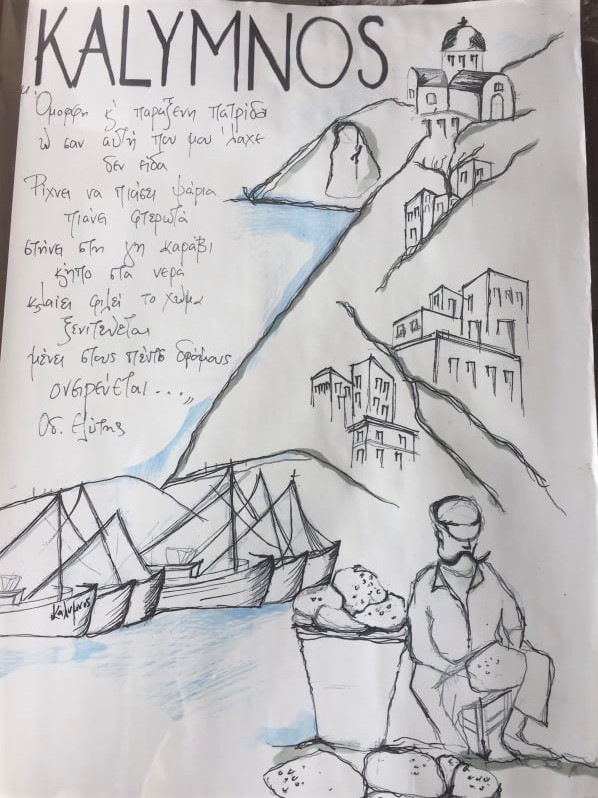 KALYMNOS
"Όμορφη κ' παράξενη πατρίδα
ω σαν αυτή που μου 'λαχε
δεν είδα
Ρίχνει να πιάσει ψάρια
πιάνει φτερωτά
στήνει στη γη καράβι
κήπο στα νερά
κλαίει φιλεί το χώμα
ξενιτεύεται
μένει στους πέντε δρόμους
ονειρεύεται...,,
Οδ. Ελύτης
Καλυμνος